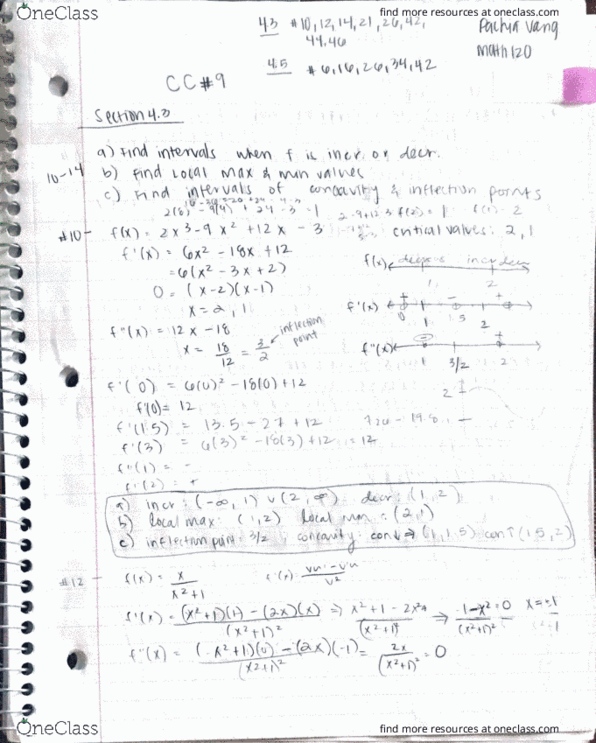 OneClass
find more resources at oneclass.com
4.3 #10, 12, 14, 21, 26, 42,
44, 46
Pachia Vang
math 120
4.5 #6, 16, 26, 34, 42
CC #9
Section 4.3
10-14
a) Find intervals when f is incr or decr.
b) find local max & min values
c) Find intervals of concavity & inflection points
#10- f(x) = 2x³ - 9x² + 12x - 3
critical values: 2, 1
f'(x) = 6x² - 18x + 12
= 6(x² - 3x + 2)
0 = (x-2)(x-1)
x = 2, 1
f(x)
f'(x)
f''(x) = 12x - 18
x = 18/12 = 3/2 inflection point
f''(x)
1 3/2 2
f'(0) = 6(0)² - 18(0) + 12
f'(0) = 12
f'(1.5) = 13.5 - 27 + 12
f'(3) = 6(3)² - 18(3) + 12 = 12
f'(1) = -
f'(2) = +
a) incr: (-∞, 1) ∪ (2, ∞) decr: (1, 2)
b) local max: (1, 2) local min: (2, 1)
c) inflection point: 3/2 concavity: con↓ (1, 1.5) con↑ (1.5, 2)
#12- f(x) = x / x²+1
f'(x) = (x²+1)(1) - (2x)(x) / (x²+1)² ⇒ x²+1-2x² / (x²+1)² ⇒ 1-x² = 0 / (x²+1)²
f''(x) = (x²+1)(0) - (2x)(-1) / (x²+1)² = 2x / (x²+1)² = 0
OneClass
find more resources at oneclass.com